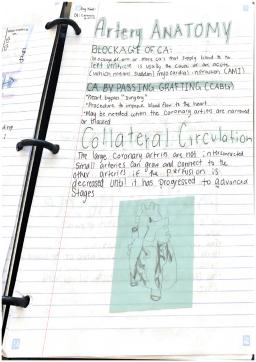 Artery ANATOMY
BLOCKAGE OF CA:
blockage of one or more CA's that supply blood to the
left ventricle is usually the cause of an acute
(which means sudden) myocardial infarction (AMI)
CA BYPASSING GRAFTING (CABG)
"heart bypass" surgery"
*Procedure to improve blood flow to the heart
*May be needed when the coronary arteries are narrowed
or blocked
Collateral Circulation
The large coronary arteries are not interconnected
Small arteries can grow and connect to the
other arteries if the perfusion is
decreased until it has progressed to advanced
stages